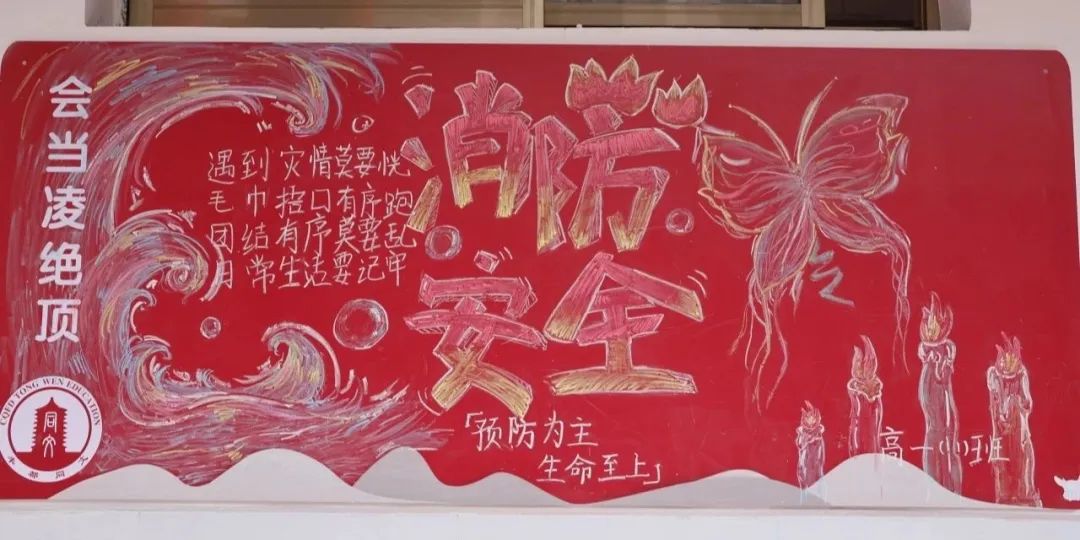 会当凌绝顶
遇到灾情莫要恍
毛巾捂口有序跑
团结有序莫要乱
日常生活要记牢
消防
安全
「预防为主
生命至上」
高一(1)班
CQFD TONG WEN EDUCATION
同文
丰都同文